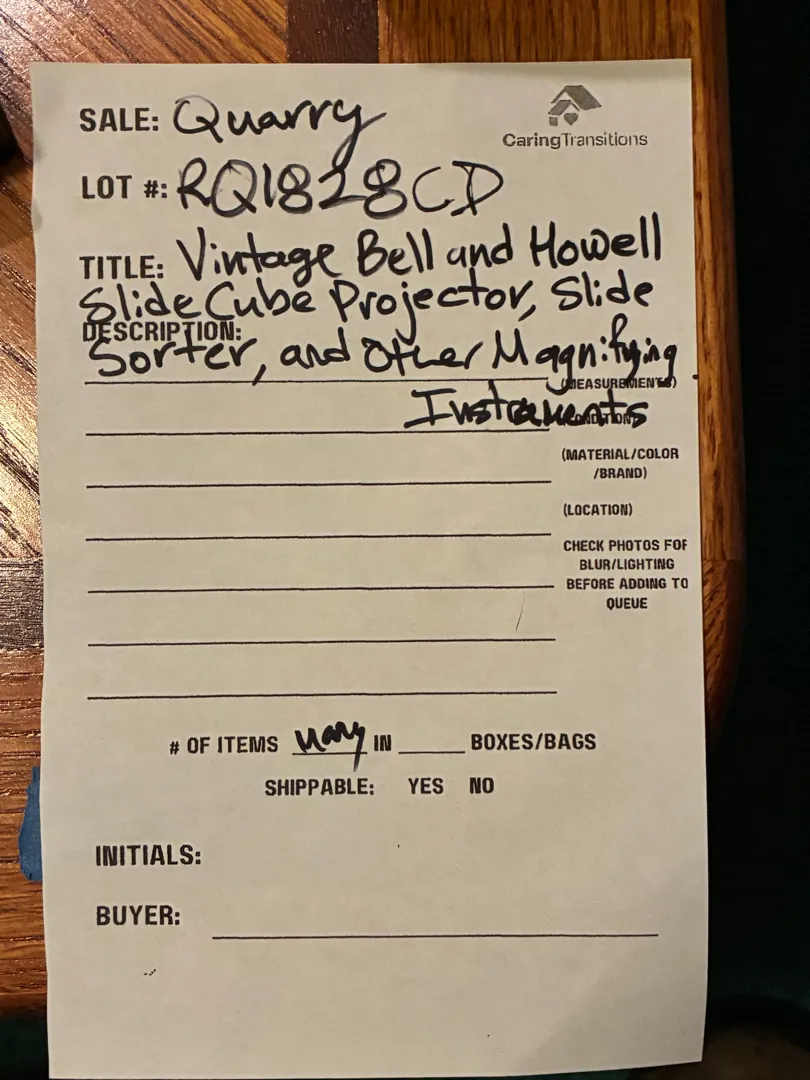 SALE: Quarry
CaringTransitions
LOT #: RQ1828CD
TITLE: Vintage Bell and Howell
Slide Cube Projector, Slide
DESCRIPTION:
Sorter, and Other Magnifying
(MEASUREMENTS)
Instruments
(CONDITION)
(MATERIAL/COLOR
/BRAND)
(LOCATION)
CHECK PHOTOS FOR
BLUR/LIGHTING
BEFORE ADDING TO
QUEUE
# OF ITEMS Many IN ______ BOXES/BAGS
SHIPPABLE: YES NO
INITIALS:
BUYER: